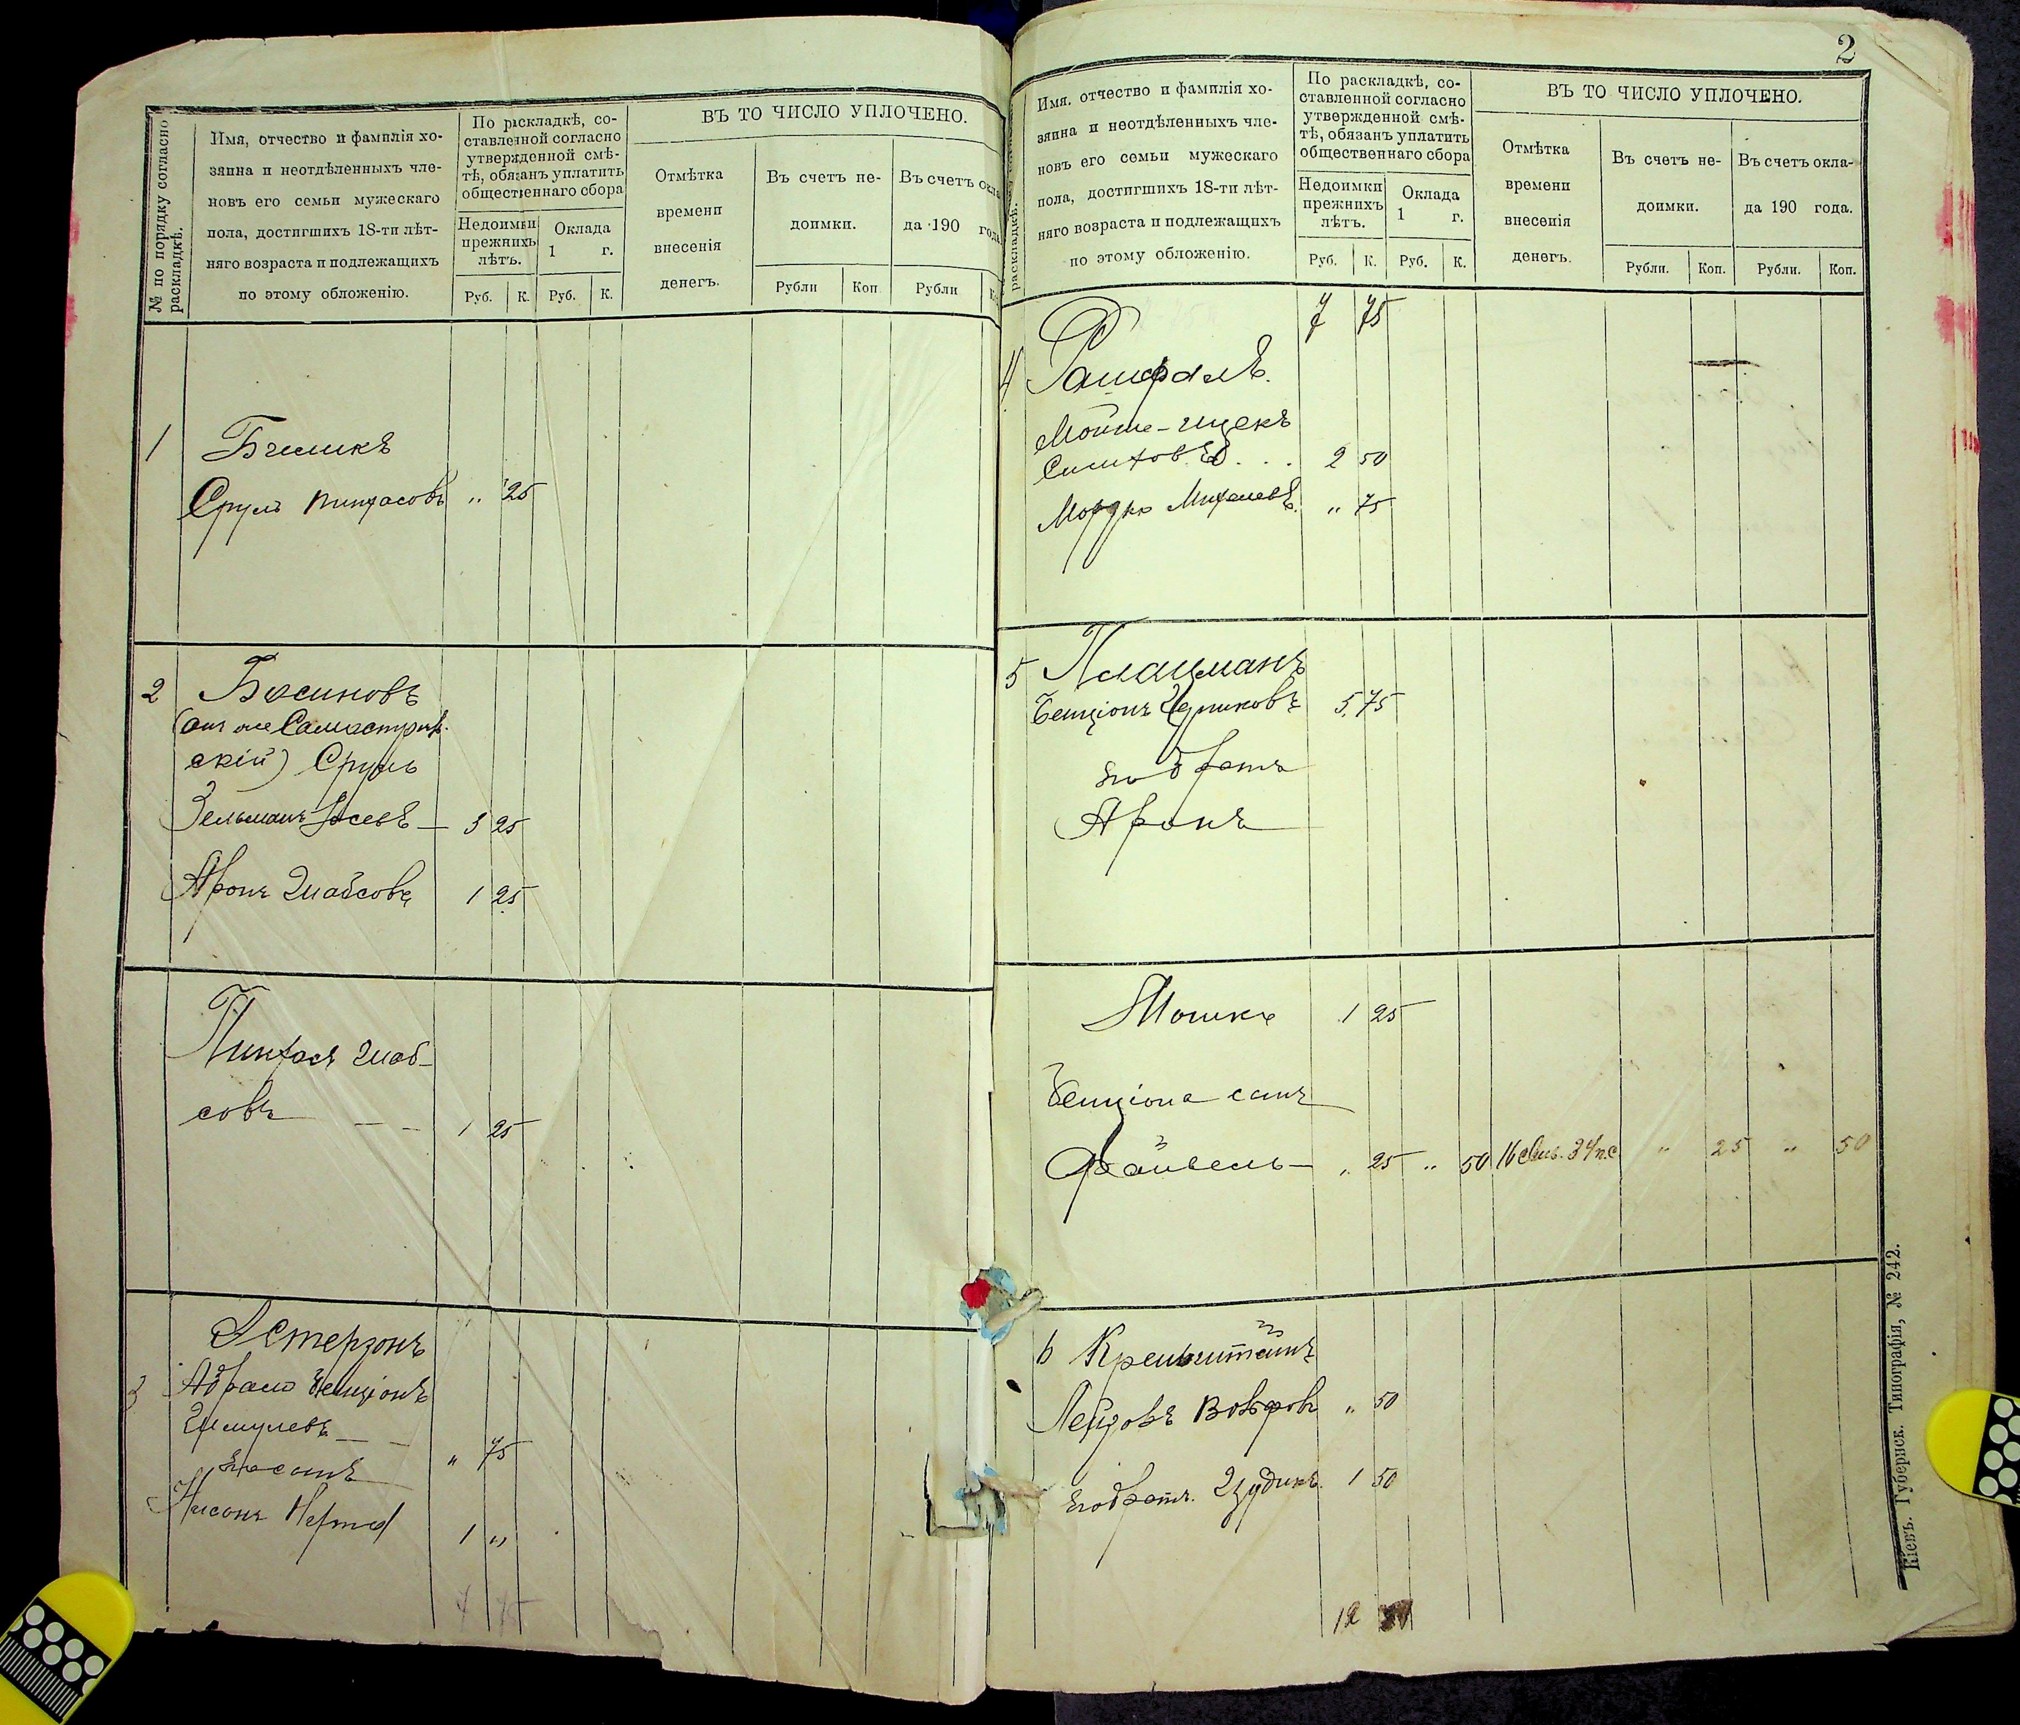 № по порядку согласно
раскладкѣ.
Имя, отчество и фамилія хо-
зяина и неотдѣленныхъ чле-
новъ его семьи мужескаго
пола, достигшихъ 18-ти лѣт-
няго возраста и подлежащихъ
по этому обложенію.
По раскладкѣ, со-
ставленной согласно
утвержденной смѣ-
тѣ, обязанъ уплатить
общественнаго сбора
Недоимки
прежнихъ
лѣтъ.
Оклада
1 г.
Руб. К. Руб. К.
ВЪ ТО ЧИСЛО УПЛОЧЕНО.
Отмѣтка
времени
внесенія
денегъ.
Въ счетъ не-
доимки.
Рубли Коп
Въ счетъ окла
да 190 года
Рубли К
1
Срулъ Пинхасовъ " 25
2 Босиновъ
скій) Сруль
Зельманъ 3 25
Аронъ Шабсовъ 1 25
Пинхасъ Шаб-
совъ — — 1 25
Эстерзонъ
3 Абрамъ Бенціонъ
Шмулевъ — — " 75
его сынъ
Нисонъ 1 "
7 75
2
раскладкѣ.
Имя, отчество и фамилія хо-
зяина и неотдѣленныхъ чле-
новъ его семьи мужескаго
пола, достигшихъ 18-ти лѣт-
няго возраста и подлежащихъ
по этому обложенію.
По раскладкѣ, со-
ставленной согласно
утвержденной смѣ-
тѣ, обязанъ уплатить
общественнаго сбора
Недоимки
прежнихъ
лѣтъ.
Оклада
1 г.
Руб. К. Руб. К.
ВЪ ТО ЧИСЛО УПЛОЧЕНО.
Отмѣтка
времени
внесенія
денегъ.
Въ счетъ не-
доимки.
Рубли. Коп.
Въ счетъ окла-
да 190 года.
Рубли. Коп.
7 75
4
Мойше-Ицекъ
2 50
Мордко Михелевъ. " 75
5 Плацманъ
Бенціонъ 5 75
его братъ
Аронъ
Мошко 1 25
Бенціона сынъ
Файвель — " 25 " 50 16 " 25 " 50
6 Кренштейнъ
Вольфовъ " 50
его братъ 1 50
12
Кіевъ. Губернск. Типографія, № 242.